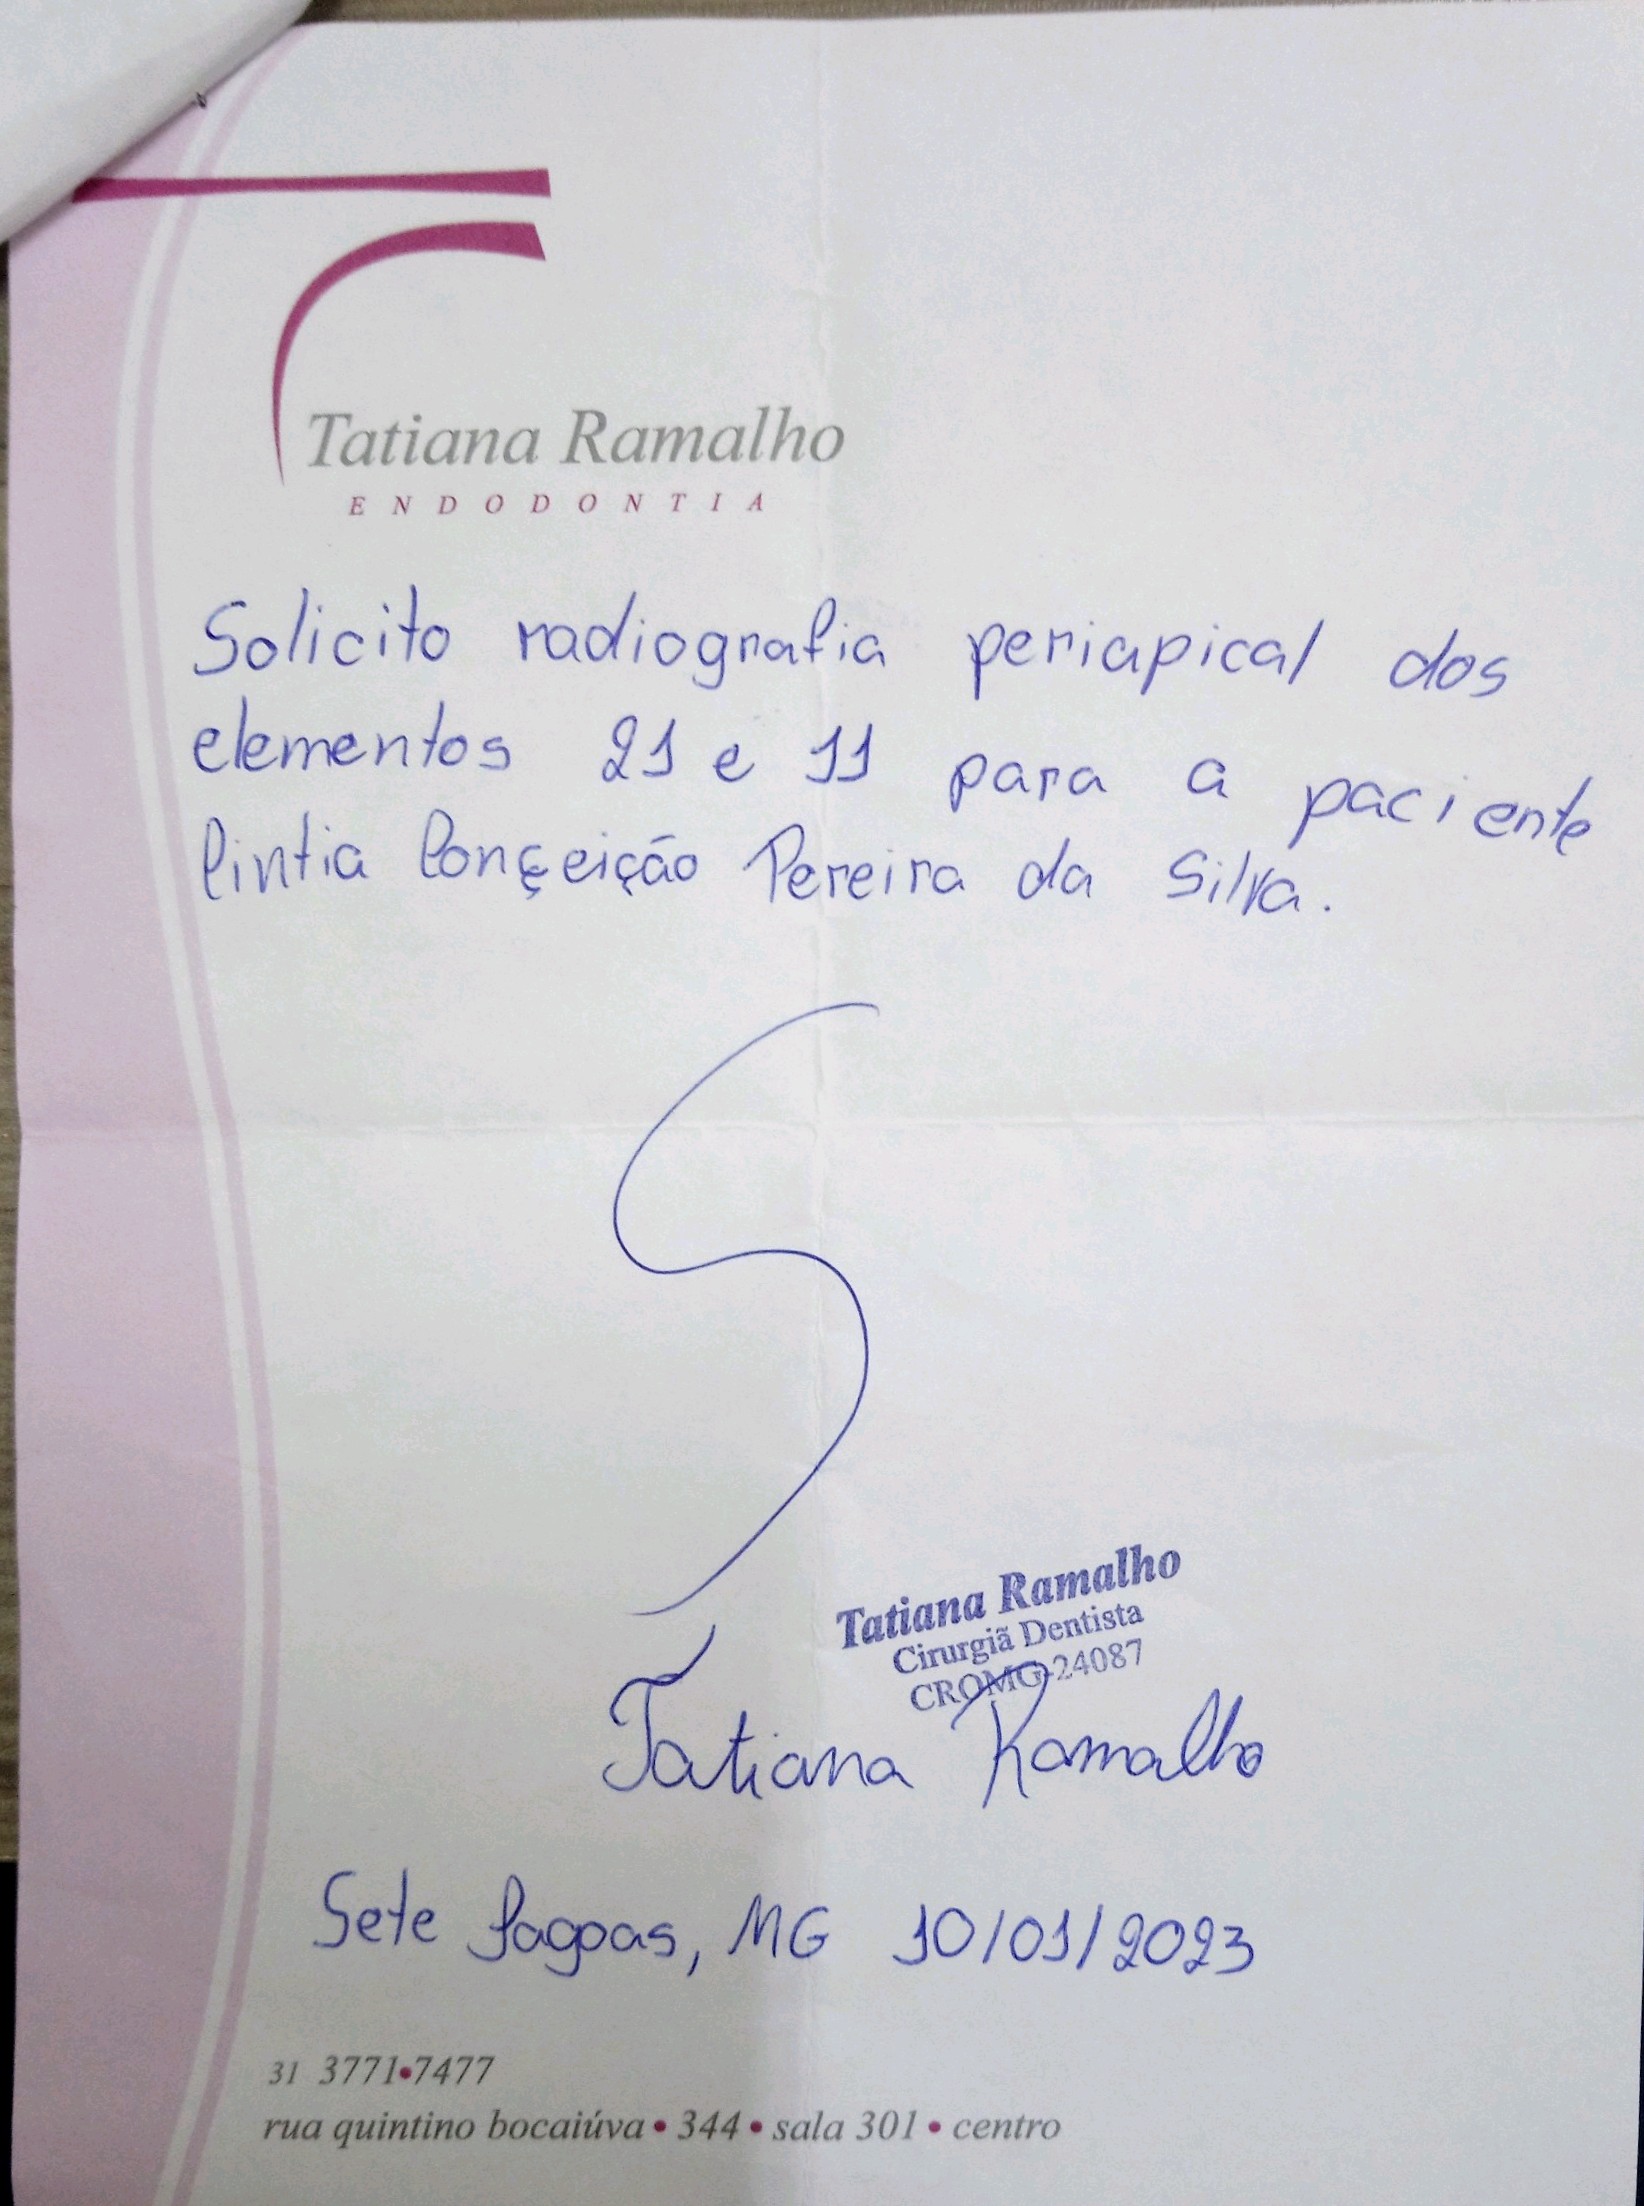 Tatiana Ramalho
ENDODONTIA
Solicito radiografia periapical dos
elementos 21 e 11 para a paciente
Cintia Conçeição Pereira da Silva.
Tatiana Ramalho
Cirurgiã Dentista
CROMG-24087
Tatiana Ramalho
Sete Lagoas, MG 10/01/2023
31 3771•7477
rua quintino bocaiúva • 344 • sala 301 • centro